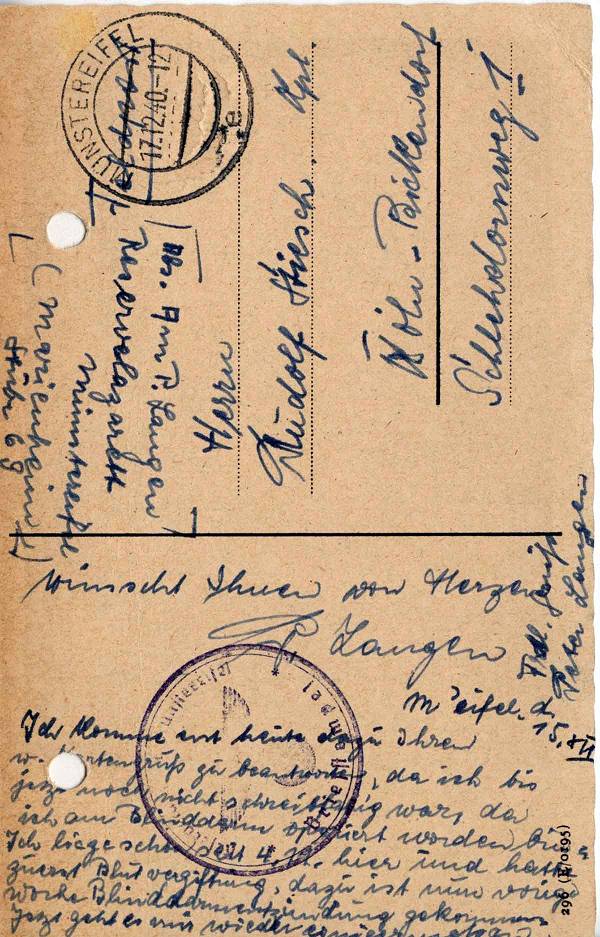 MÜNSTEREIFEL
17.12.40.-12
e
Feldpost
Abs. Am P. Langen
Reservelazarett
Münstereifel
(Marienheim)
Stube 6
Herrn
Rudolf Hirsch.
Köln-Bickendorf
Schlehdornweg 1
wünscht Ihnen von Herzen
P. Langen
Frdl. Gruß
Peter Langen
M'eifel. d.
15. XII
Ich komme erst heute dazu Ihren
w. Kartengruß zu beantworten, da ich bis
jetzt noch nicht schreibfähig war, da
ich am Blinddarm operiert worden bin.
Ich liege schon seit 4. 12. hier und hatte
zuerst Blutvergiftung, dazu ist nun vorige
Woche Blinddarmentzündung gekommen.
Jetzt geht es mir wieder